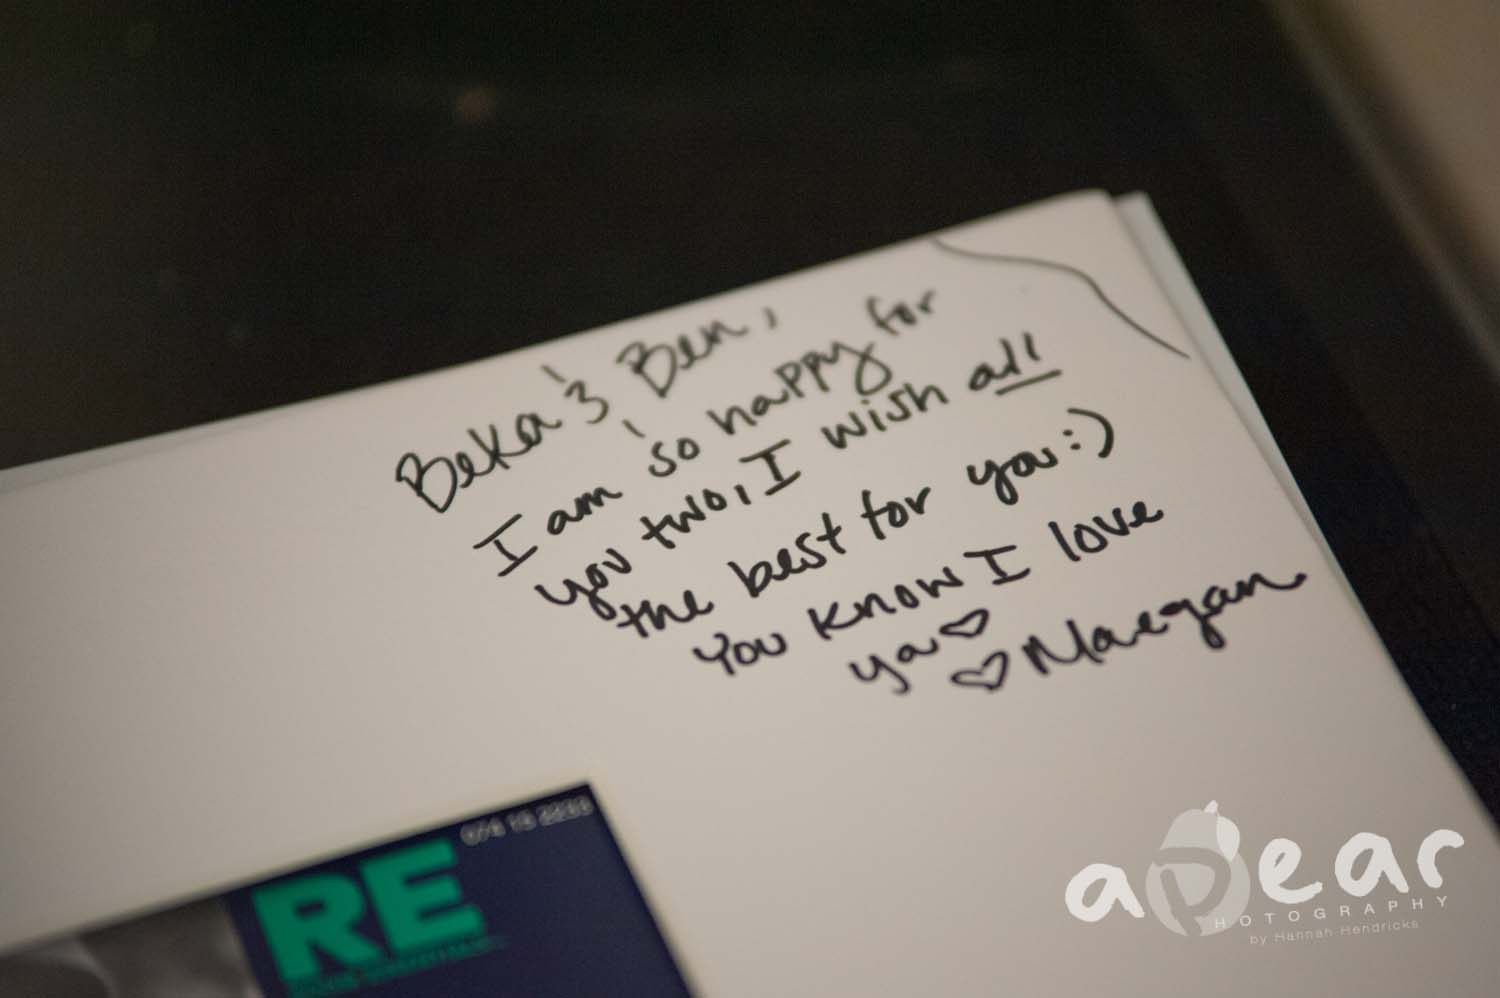 Beka & Ben,
I am so happy for
you two, I wish all
the best for you :)
You know I love
ya ♡
♡ Maegan
RE
aPear
PHOTOGRAPHY
by Hannah Hendricks